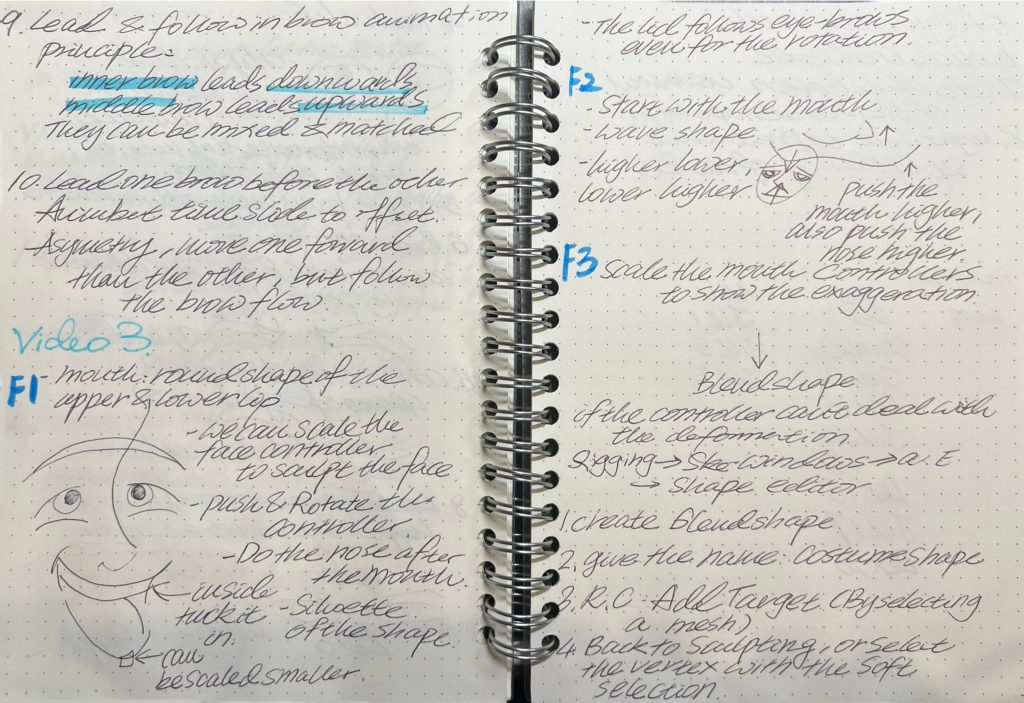 9. Lead & follow in brow animation
principle:
inner brow leads downwards
middle brow leads upwards
They can be mixed & matched
10. Lead one brow before the other.
Animbot time slide to offset.
Asymetry, move one forward
than the other, but follow
the brow flow.
Video 3
F1 - mouth: round shape of the
upper & lower lip
- We can scale the
face controller
to sculpt the face
- push & Rotate the
controller.
- Do the nose after
the mouth.
← inside
tuck it
in.
- Siloette
of the shape.
← can
be scaled smaller.
- The lid follows eye-brows
even for the rotation.
F2
- Start with the mouth
- wave shape
- higher lower,
lower higher.
push the
mouth higher,
also push the
nose higher.
F3 Scale the mouth controllers
to show the exaggeration.
Blendshape
if the controller can't deal with
the deformation.
Rigging → Windows → a. E
→ Shape editor
1. create blendshape
2. give the name: Costume shape
3. R.C: Add Target (By selecting
a mesh)
4. Back to Sculpting, or select
the vertex with the soft
selection.